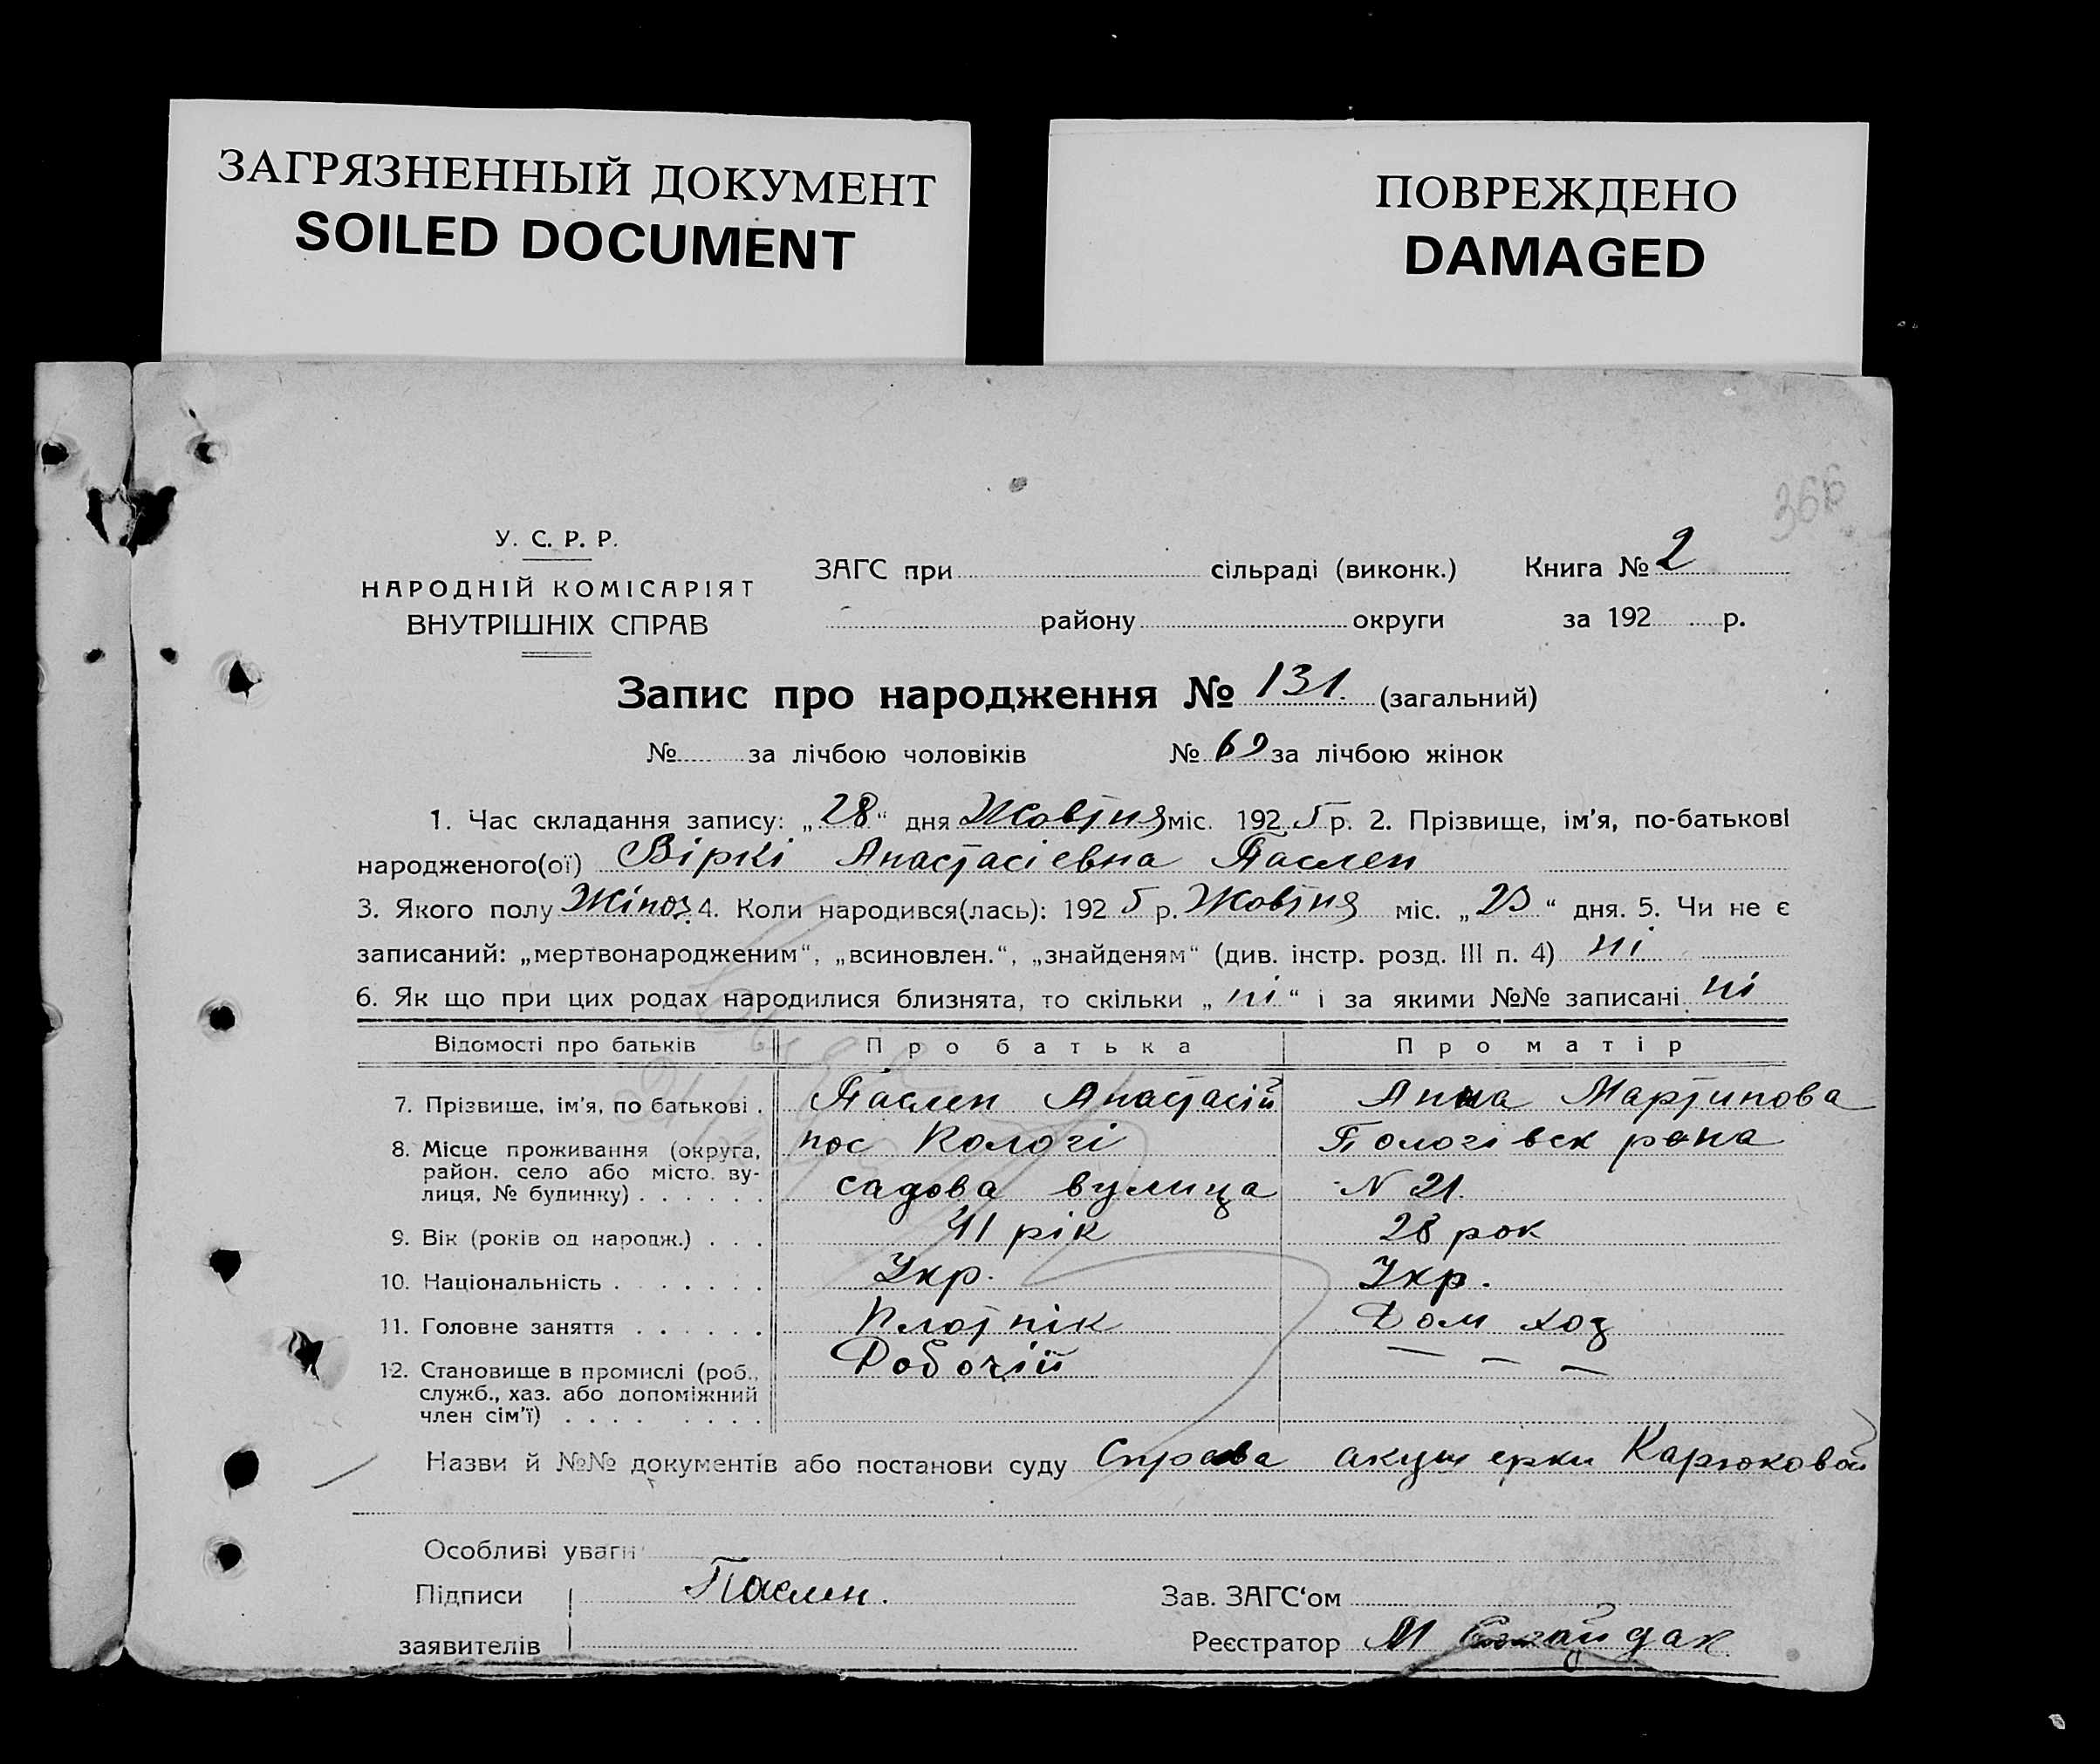 ЗАГРЯЗНЕННЫЙ ДОКУМЕНТ
SOILED DOCUMENT
ПОВРЕЖДЕНО
DAMAGED
У. С. Р. Р.
НАРОДНІЙ КОМІСАРІЯТ
ВНУТРІШНІХ СПРАВ
ЗАГС при сільраді (виконк.) Книга № 2
району округи за 192 р.
Запис про народження № 131. (загальний)
№ за лічбою чоловіків № 69 за лічбою жінок
1. Час складання запису: „28“ дня Жовтня міс. 1925 р. 2. Прізвище, ім'я, по-батькові
народженого(ої) Віркі Анастасіевна Паслен
3. Якого полу Жіноз 4. Коли народився(лась): 1925 р. Жовтня міс. „23“ дня. 5. Чи не є
записаний: „мертвонародженим“, „всиновлен.“, „знайденям“ (див. інстр. розд. III п. 4) ні
6. Як що при цих родах народилися близнята, то скільки „ні“ і за якими №№ записані ні
Відомості про батьків Про батька Про матір
7. Прізвище, ім'я, по батькові . Паслен Анастасій Анна Мартинова
8. Місце проживання (округа, район, село або місто, вулиця, № будинку) . . . . . . пос Пологі Пологівск рона
садова вулица N 21.
9. Вік (років од народж.) . . . 41 рік 28 рок
10. Національність . . . . . . . Укр. Укр.
11. Головне заняття . . . . . . Плотнік Дом хоз
12. Становище в промислі (роб., Робочій — — —
служб., хаз. або допоміжний
член сім'ї) . . . . . . . .
Назви й №№ документів або постанови суду Справа акушерки Карюковой
Особливі уваги
Підписи Паслен. Зав. ЗАГС‘ом
заявителів Реєстратор М